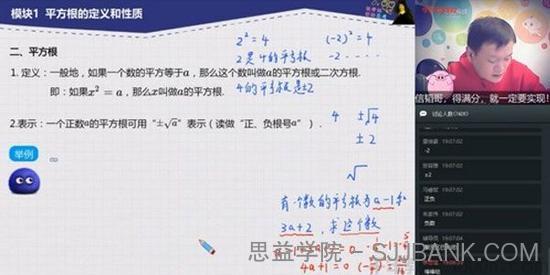 模块1 平方根的定义和性质
二、平方根
1. 定义：一般地，如果一个数的平方等于a，那么这个数叫做a的平方根或二次方根.
即：如果x²＝a，那么x叫做a的平方根.
2.表示：一个正数a的平方根可用“±√a”表示（读做“正、负根号a”）.
举例
2²＝4 (-2)²＝4
2是4的平方根 -2 ·····
4的平方根是±2
4 ±√4
±2
√
有一个数的平方根为a-1和
3a+2，求这个数
4a+1＝0
信韬哥，得满分，就一定要实现！
19:07:02
-2
19:07:02
±2
19:07:02
正负
19:07:02
19:07:02
思益学院 - SJJBANK.COM